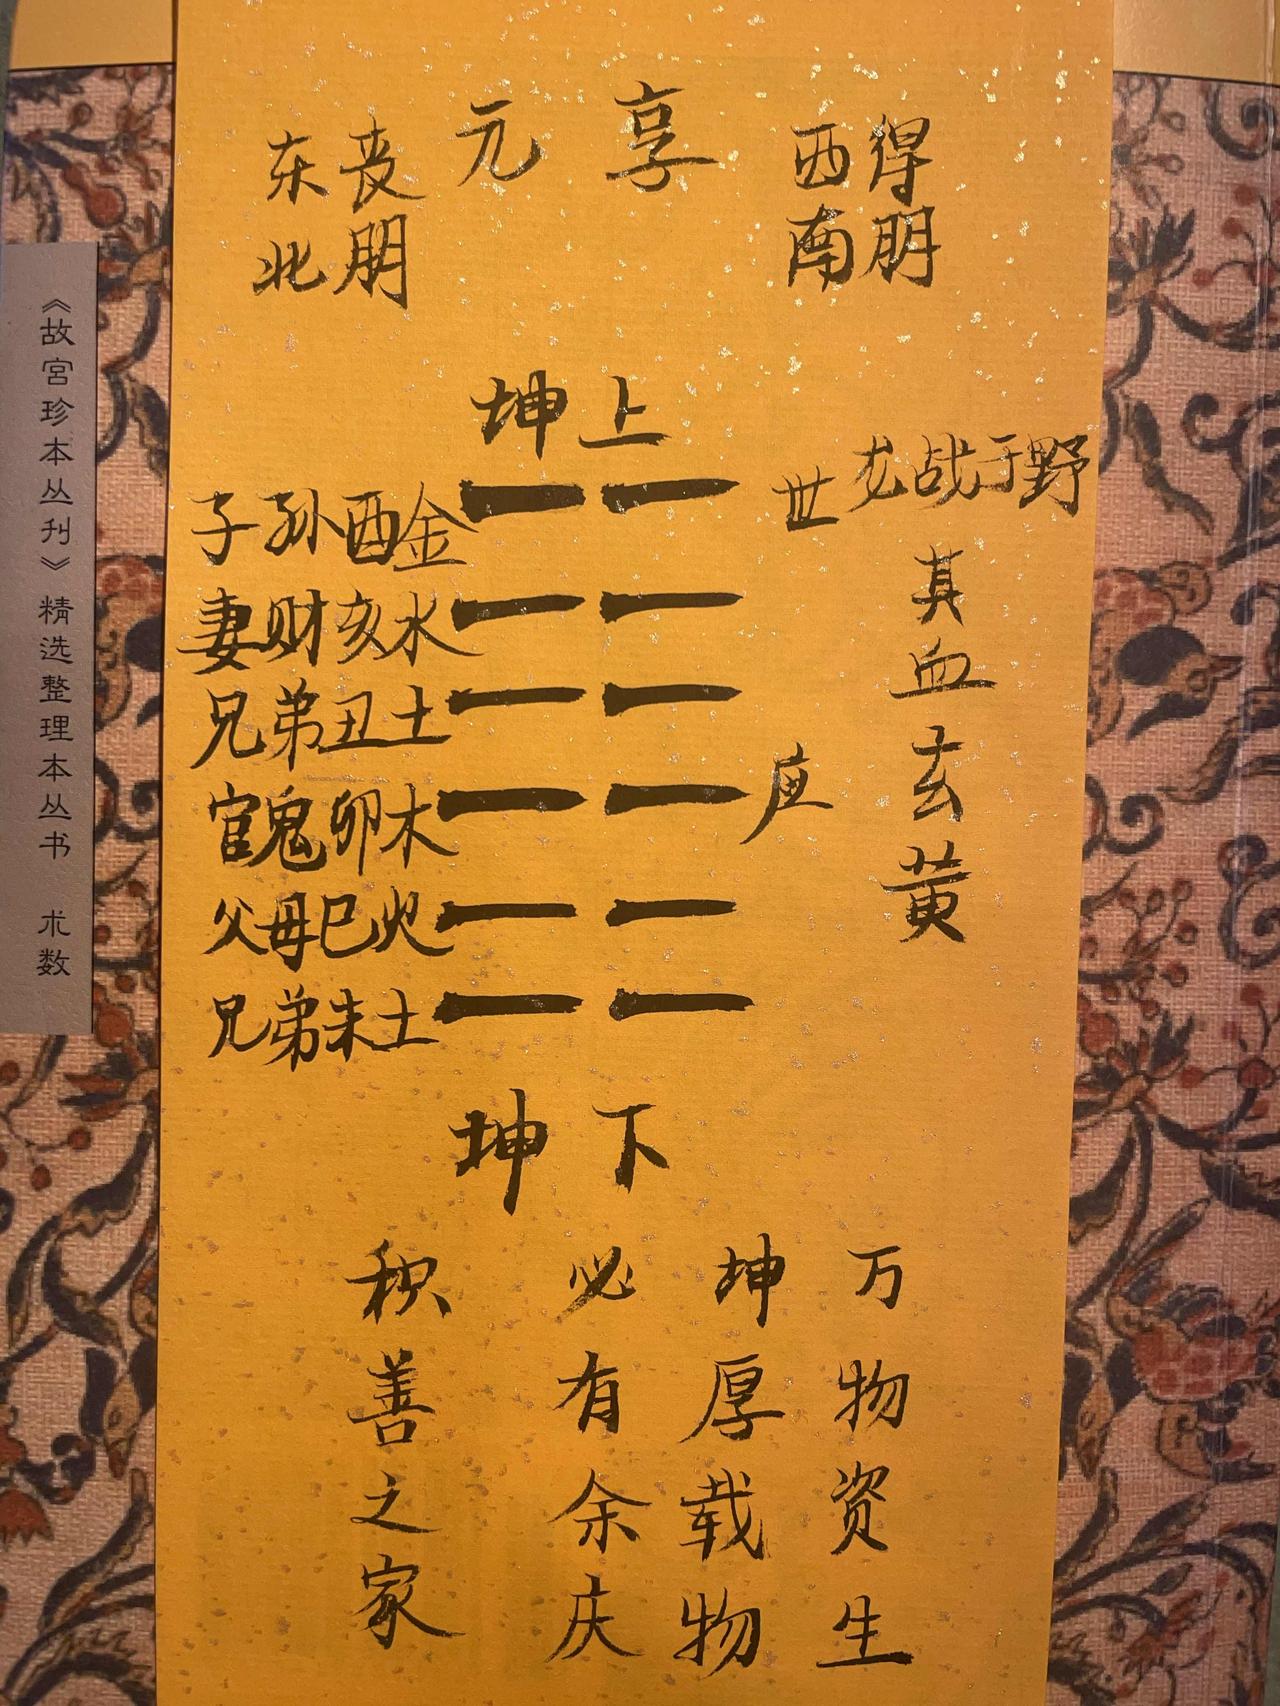 《故宫珍本丛刊》精选整理本丛书 术数
元享
东北
丧朋
西南
得朋
坤上
子孙酉金
世
龙战于野
妻财亥水
兄弟丑土
官鬼卯木
应
父母巳火
兄弟未土
其血玄黄
坤下
积善之家
必有余庆
坤厚载物
万物资生